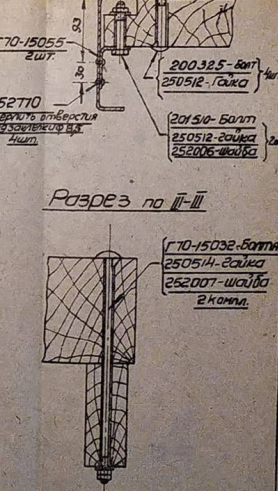 93
Г70-15055
2шт.
30
200325-Болт
250512-Гайка
4шт
52770
отверстия
4шт
201510-Болт
250512-гайка
252006-шайба
2
Разрез по III-III
Г70-15032-Болт
250514-гайка
252007-шайба
2 компл.